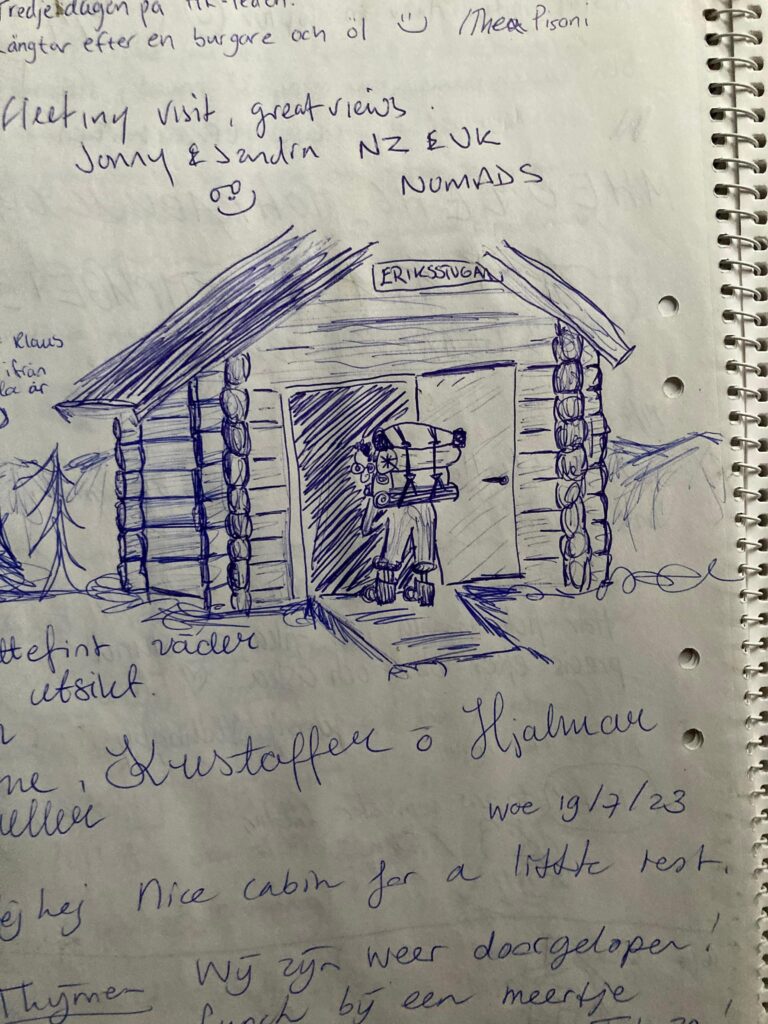 Tredje dagen på
Längtar efter en burgare och öl /Thea Pisoni
Fleeting visit, great views.
Jonny & Sandra NZ & UK
NOMADS
ERIKSSTUGAN
Klaus
ifrån
är
väder
utsikt.
Kristoffer o Hjalmar
woe 19/7/23
hej Nice cabin for a little rest.
Wij zijn weer doorgelopen!
Thijmen
Lunch bij een meertje